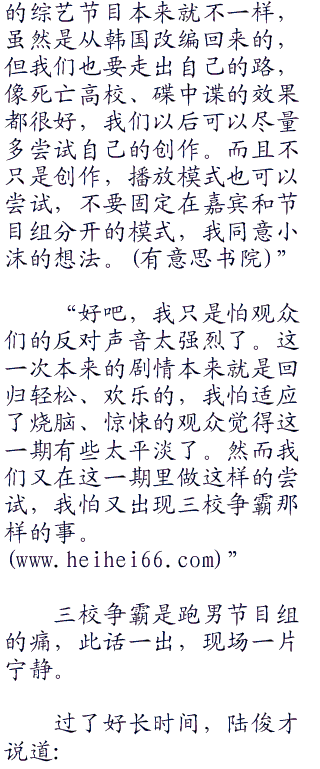 的综艺节目本来就不一样，
虽然是从韩国改编回来的，
但我们也要走出自己的路，
像死亡高校、碟中谍的效果
都很好，我们以后可以尽量
多尝试自己的创作。而且不
只是创作，播放模式也可以
尝试，不要固定在嘉宾和节
目组分开的模式，我同意小
沫的想法。(有意思书院)”
“好吧，我只是怕观众
们的反对声音太强烈了。这
一次本来的剧情本来就是回
归轻松、欢乐的，我怕适应
了烧脑、惊悚的观众觉得这
一期有些太平淡了。然而我
们又在这一期里做这样的尝
试，我怕又出现三校争霸那
样的事。
(www.heihei66.com)”
三校争霸是跑男节目组
的痛，此话一出，现场一片
宁静。
过了好长时间，陆俊才
说道: